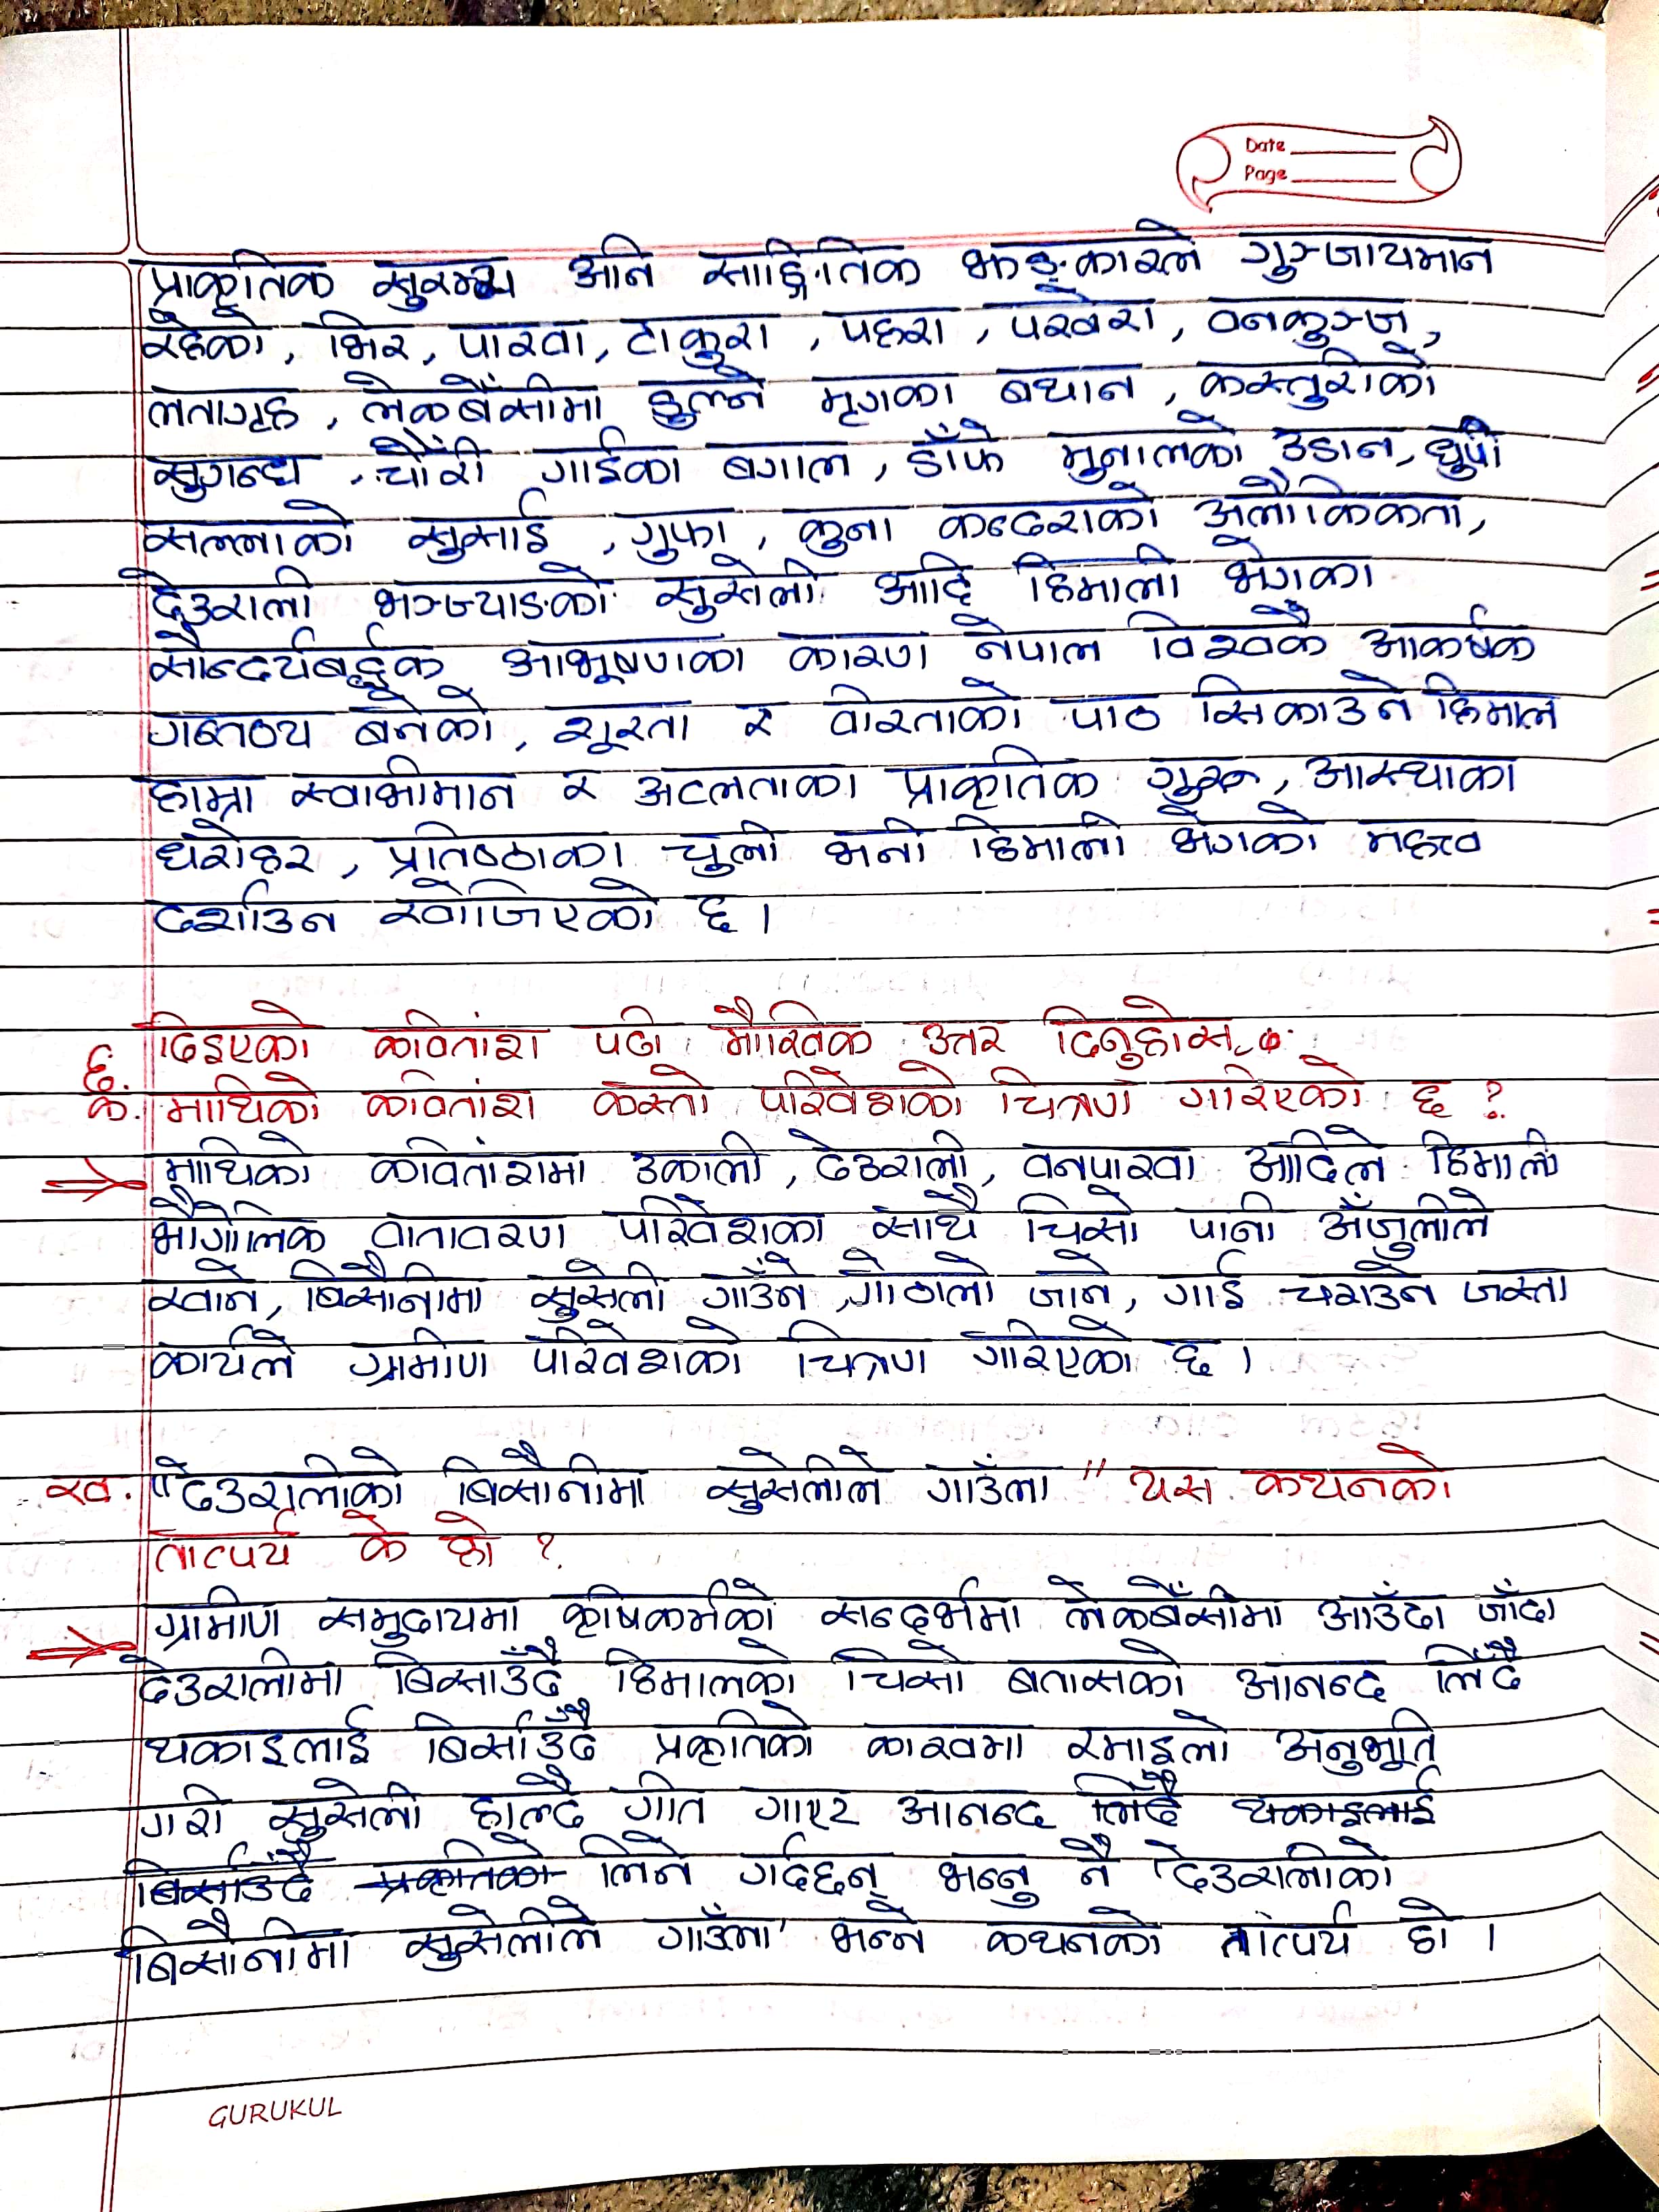 Date
Page
प्राकृतिक सुरम्य अनि साङ्गितिक झङ्कारले गुञ्जायमान
रहेको, भिर, पाखा, टाकुरा, पहरा, पखेरा, वनकुञ्ज,
लतागृह, लेकबेँसीमा डुल्ने मृगका बथान, कस्तुरीको
सुगन्ध, चौँरी गाईका बगाल, डाँफे मुनालको उडान, धुपी
सल्लाको सुसाई, गुफा, कुना कन्दराको अलौकिकता,
देउराली भञ्ज्याङको सुसेली आदि हिमाली भेगका
सौन्दर्यबर्द्धक आभूषणका कारण नेपाल विश्वकै आकर्षक
गन्तव्य बनेको, शूरता र वीरताको पाठ सिकाउने हिमाल
हाम्रा स्वाभीमान र अटलताका प्राकृतिक गुरु, आस्थाका
धरोहर, प्रतिष्ठाका चुली भनी हिमाली भेगको महत्व
दर्शाउन खोजिएको छ।
६. दिइएको कवितांश पढी मौखिक उत्तर दिनुहोस्
क. माथिको कवितांश कस्तो परिवेशको चित्रण गरिएको छ?
माथिको कवितांशमा उकाली, देउराली, वनपाखा आदिले हिमाली
भौगोलिक वातावरण परिवेशका साथै चिसो पानी अँजुलीले
खाने, बिसौनीमा सुसेली गाउँने, गोठालो जाने, गाई चराउने जस्ता
कार्यले ग्रामीण परिवेशको चित्रण गरिएको छ।
ख. "देउरालीको बिसौनीमा सुसेलीले गाउँला" यस कथनको
तात्पर्य के हो?
ग्रामीण समुदायमा कृषिकर्मको सन्दर्भमा लेकबेँसीमा आउँदा जाँदा
देउरालीमा बिसाउँदै हिमालको चिसो बतासको आनन्द लिँदै
थकाइलाई बिर्साउँदै प्रकृतिको काखमा रमाइलो अनुभूति
गरी सुसेली हाल्दै गीत गाएर आनन्द लिँदै थकाइलाई
बिर्साउँदै प्रकृतिको लिने गर्दछन् भन्नु नै 'देउरालीको
बिसौनीमा सुसेलीले गाउँला' भन्ने कथनको तात्पर्य हो।
GURUKUL